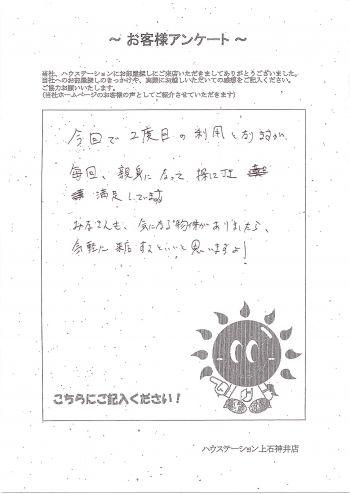 ～ お客様アンケート ～
当社、ハウステーションにお部屋探しにご来店いただきましてありがとうございました。
当社へのお部屋探しのきっかけや、実際にお越しいただいての感想をご記入ください。
ご協力お願いいたします。
(当社ホームページのお客様の声としてご紹介させていただきます)
今回で2度目の利用となりますが、
毎回、親身になって
満足しています
みなさんも、気になる物件がありましたら、
気軽に来店するといいと思いますよ!
こちらにご記入ください!
ハウステーション上石神井店